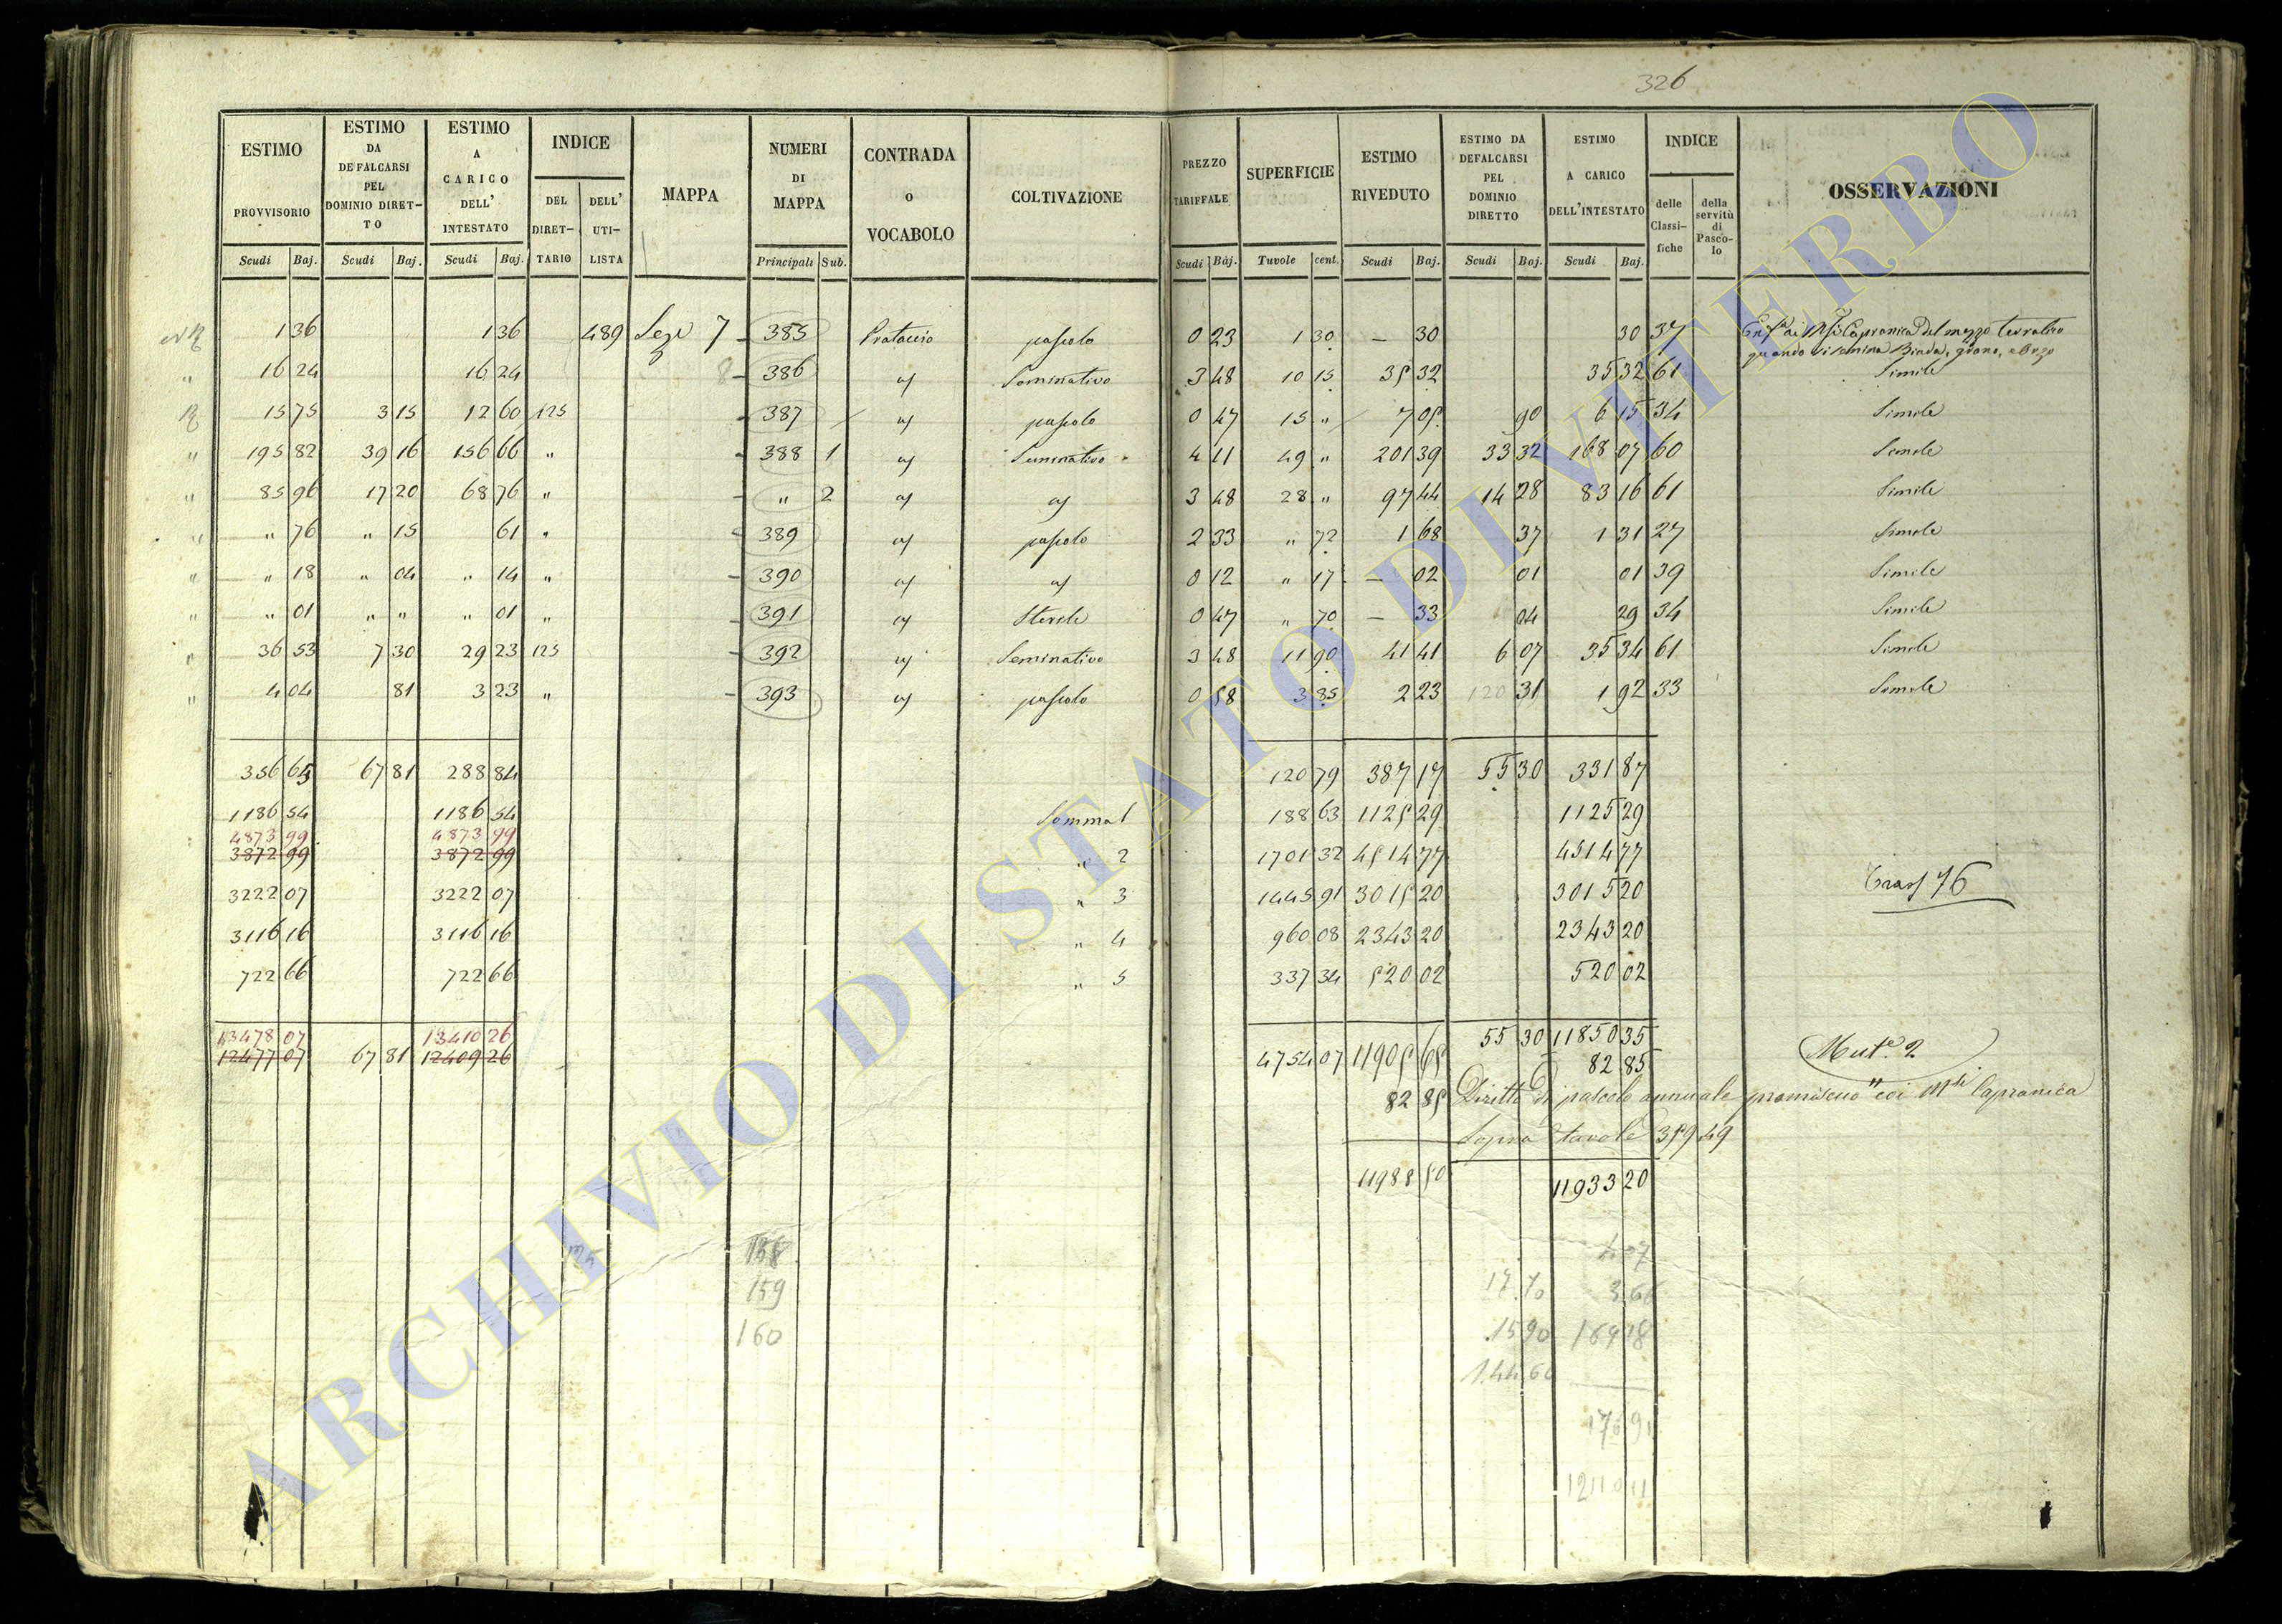 326
ESTIMO PROVVISORIO
ESTIMO DA DEFALCARSI PEL DOMINIO DIRET-TO
ESTIMO A CARICO DELL' INTESTATO
INDICE
DEL DIRET-TARIO
DELL' UTI-LISTA
MAPPA
NUMERI DI MAPPA
CONTRADA o VOCABOLO
COLTIVAZIONE
PREZZO TARIFFALE
SUPERFICIE
ESTIMO RIVEDUTO
ESTIMO DA DEFALCARSI PEL DOMINIO DIRETTO
ESTIMO A CARICO DELL'INTESTATO
INDICE
delle Classi-fiche
della servitù di Pasco-lo
OSSERVAZIONI
Scudi Baj. Scudi Baj. Scudi Baj. Principali Sub. Scudi Baj. Tavole cent. Scudi Baj. Scudi Baj. Scudi Baj.
1 36 1 36 489 Seze 7 385 Prataccio pascolo 0 23 1 30 — 30 30 37
Capranica del mezzo terratico
quando si semina Biada, grano, e Orzo
" 16 24 16 24 8 386 " Seminativo 3 48 10 15 35 32 35 32 61 Simile
15 75 3 15 12 60 125 387 " pascolo 0 47 15 " 7 05 90 6 15 34 Simile
" 195 82 39 16 156 66 " 388 1 " Seminativo 4 11 49 " 201 39 33 32 168 07 60 Simile
" 85 96 17 20 68 76 " " 2 " " 3 48 28 " 97 44 14 28 83 16 61 Simile
" " 76 " 15 61 " 389 " pascolo 2 33 " 72 1 68 37 1 31 27 Simile
" " 18 " 04 " 14 " 390 " " 0 12 " 17 — 02 01 01 39 Simile
" " 01 " " " 01 " 391 " Sterile 0 47 " 70 — 33 04 29 34 Simile
" 36 53 7 30 29 23 125 392 " Seminativo 3 48 11 90 41 41 6 07 35 34 61 Simile
" 4 04 81 3 23 " 393 " pascolo 0 58 3 85 2 23 31 1 92 33 Simile
356 65 67 81 288 84 120 79 387 17 55 30 331 87
1186 54 1186 54 Somma 1 188 63 1125 29 1125 29
4873 99 4873 99
3872 99 3872 99 " 2 1701 32 4514 77 4514 77
3222 07 3222 07 " 3 1445 91 3015 20 3015 20 Tras 76
3116 16 3116 16 " 4 960 08 2343 20 2343 20
722 66 722 66 " 5 337 34 520 02 520 02
13478 07 13410 26
12477 07 67 81 12409 26 4754 07 11905 65 55 30 11850 35 Mut.e 2
82 85
82 85 Diritto di pascolo annuale promiscuo coi M.si Capranica
Sopra tavole 359 49
11988 50 11933 20
125 158
159 17.70 3.66
160 15 90
144 60
ARCHIVIO DI STATO DI VITERBO